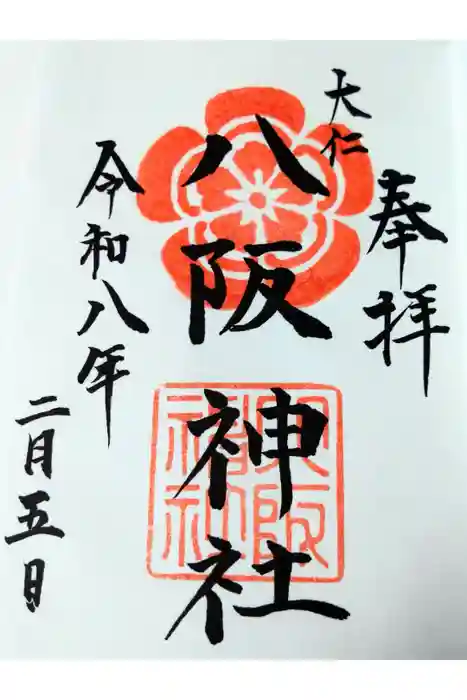 奉拝
大仁
八阪神社
八阪
神社
令和八年
二月五日